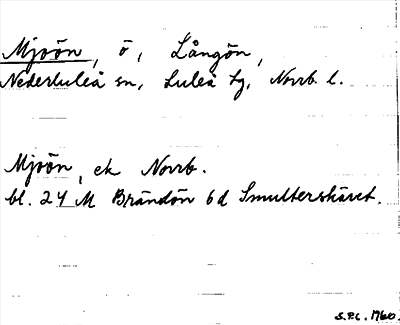 Mjoön, ö, Långön,
Nederluleå sn, Luleå tg, Norrb. l.
Mjoön, ek Norrb.
bl. 24 M Brändön 6d Smulterskäret.
S.P.C. 1960.